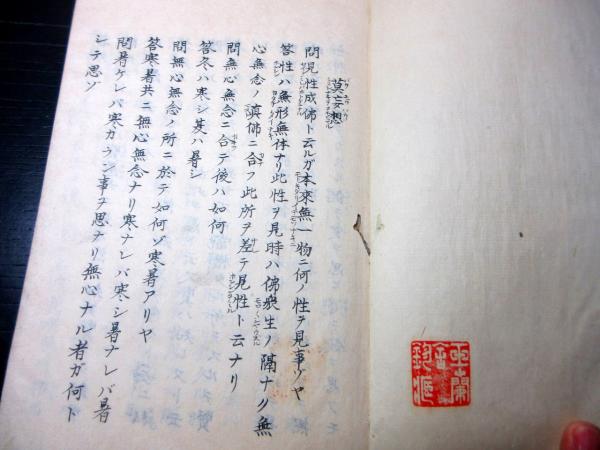 莫妄想
問見性成佛ト云ルガ本來無一物ニ何ノ性ヲ見事ゾヤ
答性ハ無形無体ナリ此性ヲ見時ハ佛衆生ノ隔ナク無
心無念ノ眞佛ニ合フ此所ヲ差テ見性ト云ナリ
問無心無念ニ合テ後ハ如何
答冬ハ寒シ夏ハ暑シ
問無心無念ノ所ニ於テ如何ゾ寒暑アリヤ
答寒暑共ニ無心無念ナリ寒ナレバ寒シ暑ナレバ暑
問暑ケレバ寒カラン事ヲ思ナリ無心ナル者ガ何ト
シテ思ゾ